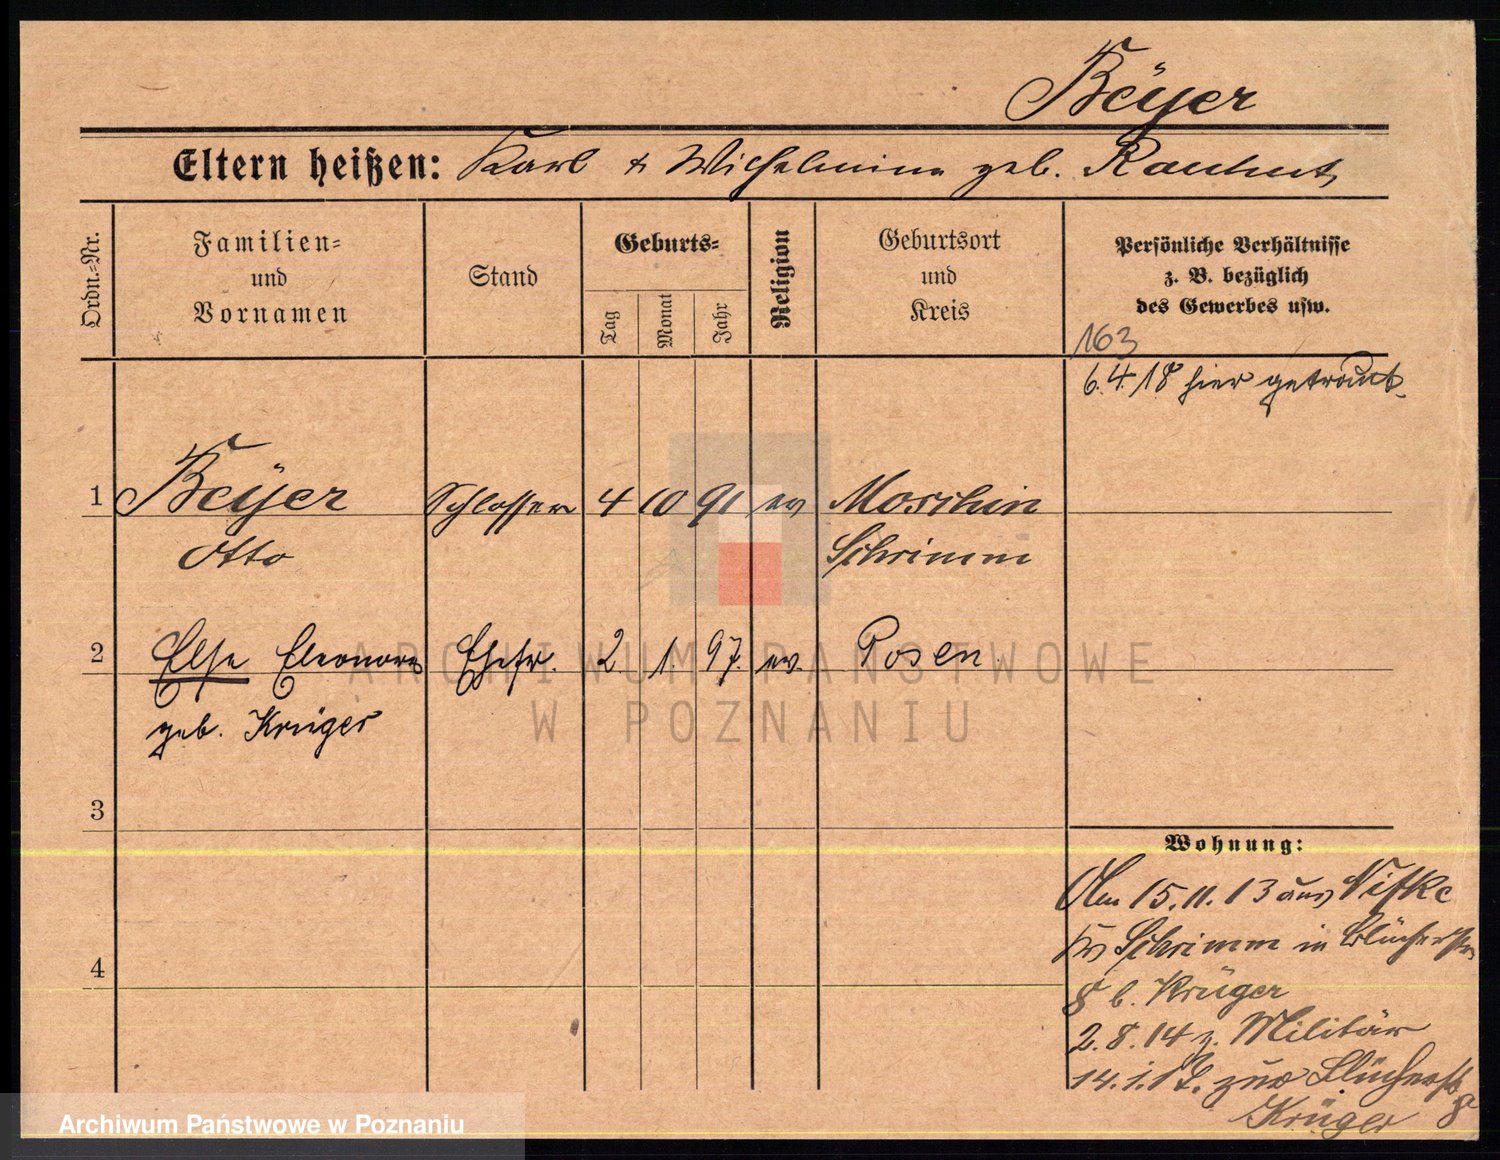 Beÿer
Eltern heißen: Karl & Wilhelmine geb. Rauhut
Ordn.=Nr.
Familien=
und
Vornamen
Stand
Geburts=
Tag
Monat
Jahr
Religion
Geburtsort
und
Kreis
Persönliche Verhältnisse
z. B. bezüglich
des Gewerbes usw.
163
6.4.18 hier getraut.
1 Beÿer Schlosser 4 10 91 ev Moschin
Otto Schrimm
2 Else Eleonore Ehefr. 2 1. 97. ev. Posen
geb. Krüger
3
4
Wohnung:
Am 15.11.13 aus
Krs Schrimm in Blücherstr
8 b. Krüger
2.8.14 z. Militär
zur Blücherstr 8
Krüger
ARCHIWUM PAŃSTWOWE
W POZNANIU
Archiwum Państwowe w Poznaniu